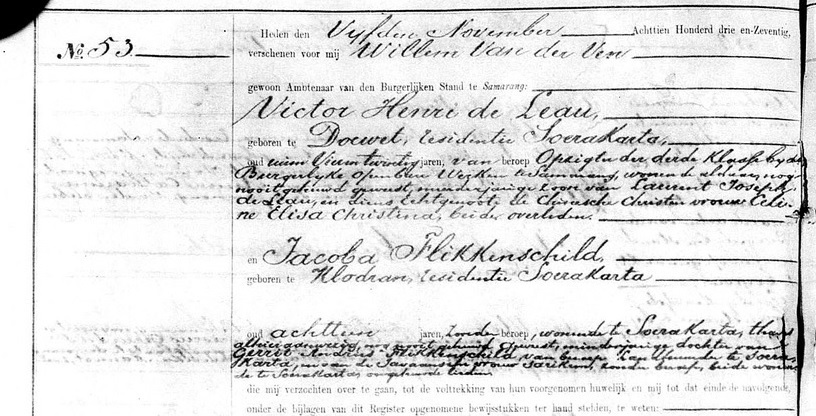 Heden den Vijfden November Achttien Honderd drie en-Zeventig,
No. 53
verschenen voor mij Willem Van der Ven
gewoon Ambtenaar van den Burgerlijken Stand te Samarang:
Victor Henri de Leau,
geboren te Docwet, residentie Soerakarta,
oud ruim Vierentwintig jaren, van beroep Opzigter der derde Klasse by de
Burgerlyke Openbare Werken te Samarang, wonende aldaar, nog
nooit gehuwd geweest, minderjarige zoon van Laurent Joseph
de Leau, en diens Echtgenoot, de Chinesche Christen vrouw Celi-
ne Elisa Christina, beiden overleden.
en Jacoba Flikkenschild,
geboren te Klodran, residentie Soerakarta
oud achttien jaren, zonder beroep, wonende te Soerakarta, thans
alhier aanwezig, nog nooit gehuwd geweest, minderjarige dochter van
Gerrit Andries Flikkenschild, van beroep te Soera
Karta, en van de Javaansche vrouw Sarikem, zonder beroep, beide wonen
de te Soerakarta, ongehuwde lieden
die mij verzochten over te gaan, tot de voltrekking van hun voorgenomen huwelijk en mij tot dat einde de navolgende,
onder de bijlagen van dit Register opgenomene bewijsstukken ter hand stelden, te weten: